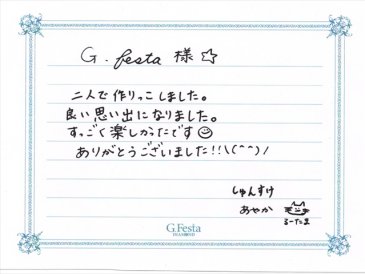 G.festa 様 ☆
二人で作りっこしました。
良い思い出になりました。
すっごく楽しかったです☺
ありがとうございました!!\(^^)/
しゅんすけ
あやか
るーたま
G.Festa